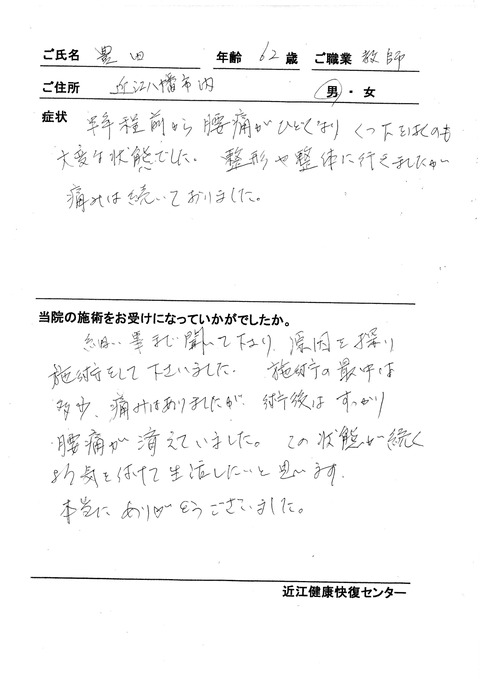 ご氏名 豊田 年齢 62歳 ご職業 教師
ご住所 近江八幡市内 男・女
症状 半年程前から腰痛がひどくなり くつ下をはくのも
大変な状態でした。整形や整体に行きましたが
痛みは続いておりました。
当院の施術をお受けになっていかがでしたか。
細い事まで聞いて下さり、原因を探り
施術をして下さいました。施術の最中は
多少、痛みはありましたが、術後はすっかり
腰痛が消えていました。この状態が続く
よう気を付けて生活したいと思います。
本当にありがとうございました。
近江健康快復センター